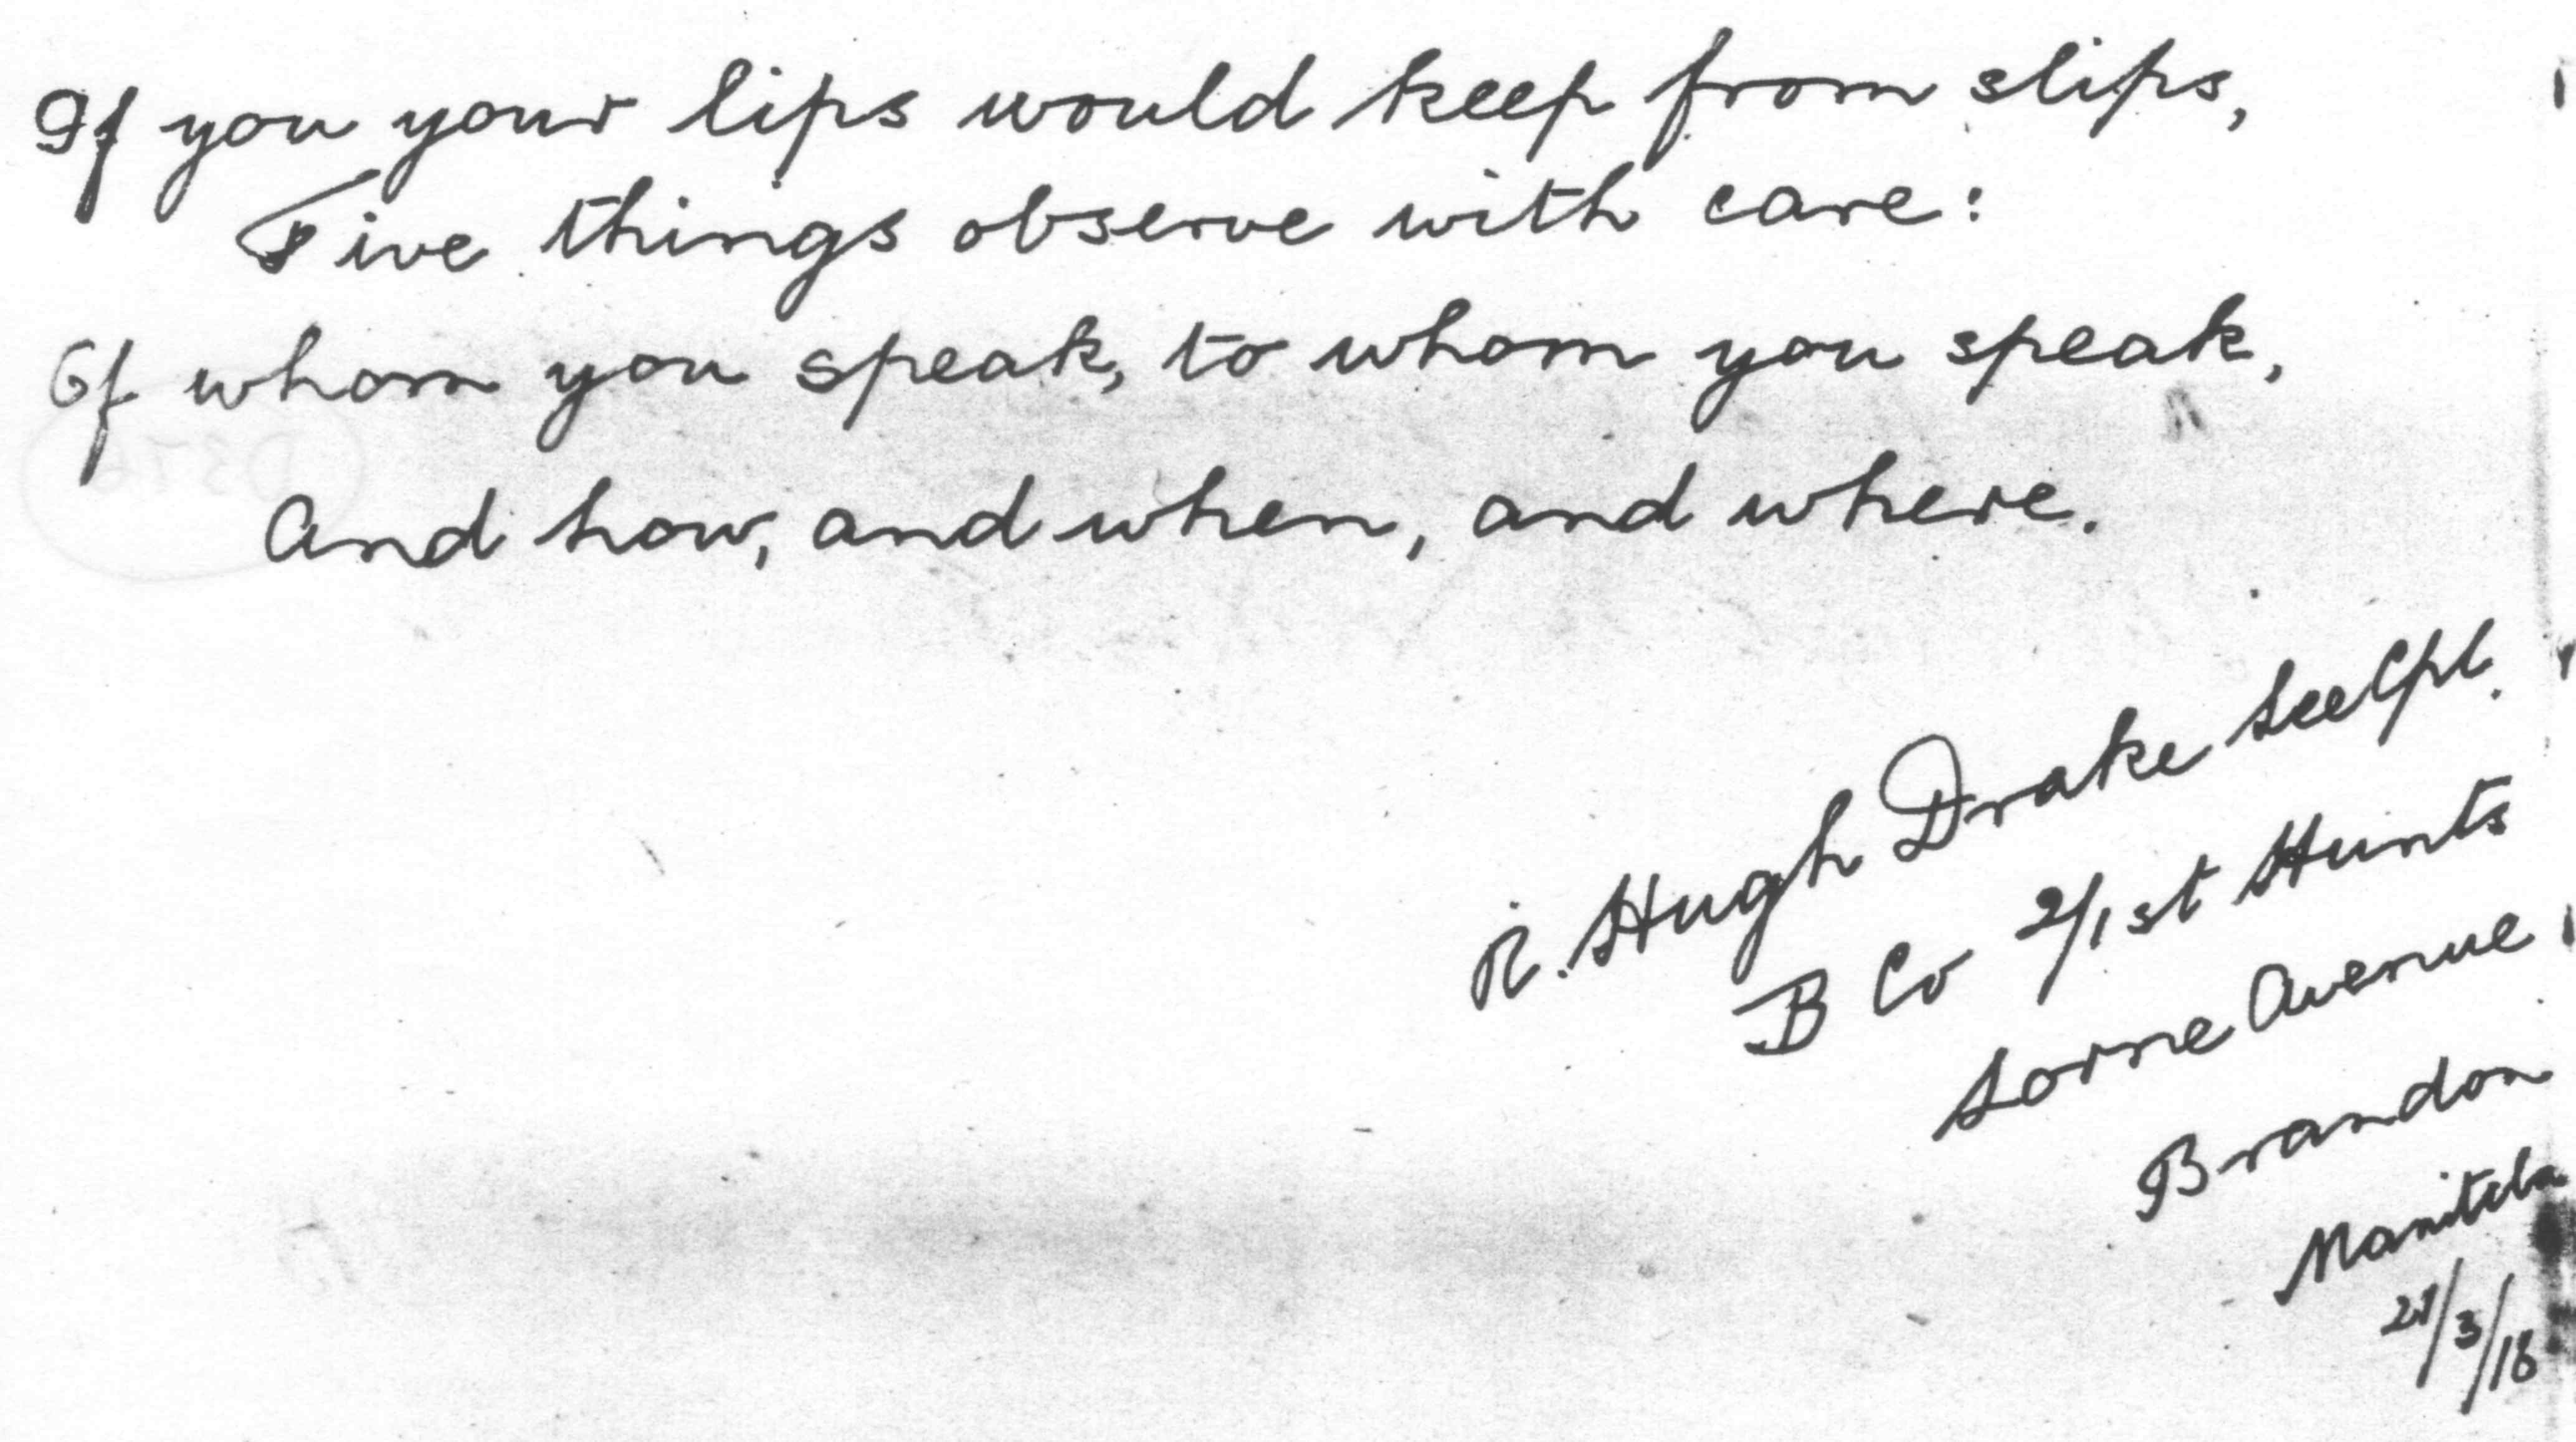 If you your lips would keep from slips,
Five things observe with care:
Of whom you speak, to whom you speak,
And how, and when, and where.
R. Hugh Drake Cpl.
B Co 2/1st Hunts
Lorne Avenue
Brandon
Manitoba
21/3/18